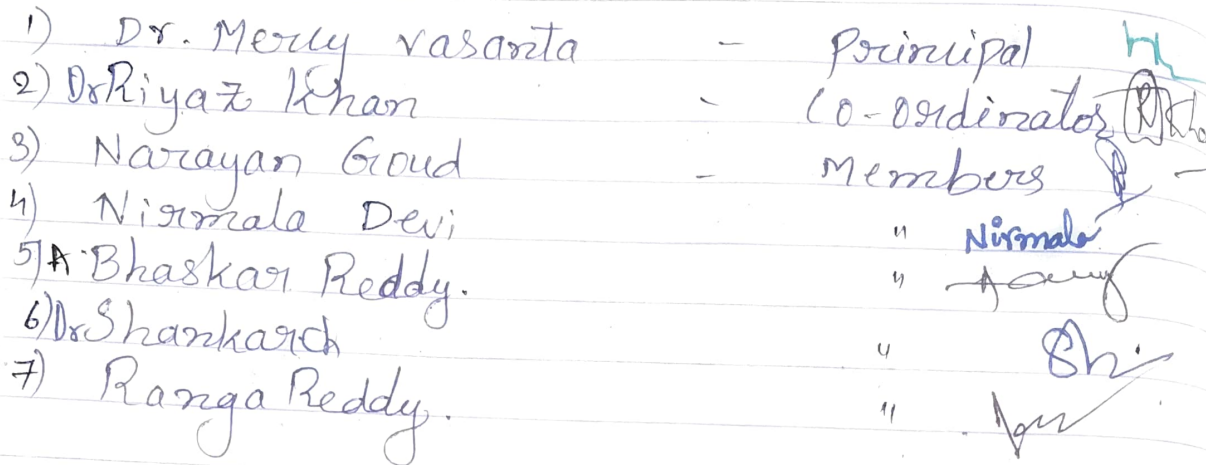 1) Dr. Mercy vasanta - Principal
2) Dr Riyaz Khan - Co-ordinator
3) Narayan Goud - Members
4) Nirmala Devi " Nirmala
5) A. Bhaskar Reddy. "
6) Dr Shankarch "
7) Ranga Reddy. "